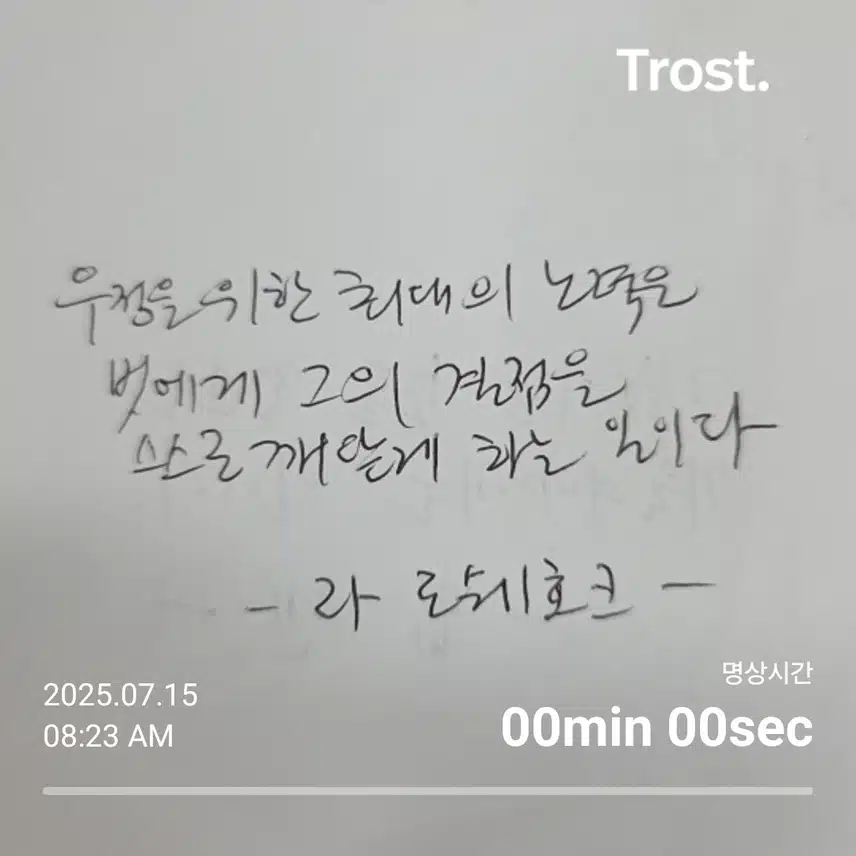 Trost.
우정을 위한 최대의 노력은
벗에게 그의 결점을
스스로 깨알게 하는 일이다
- 라 로쉬호크 -
명상시간
2025.07.15
00min 00sec
08:23 AM